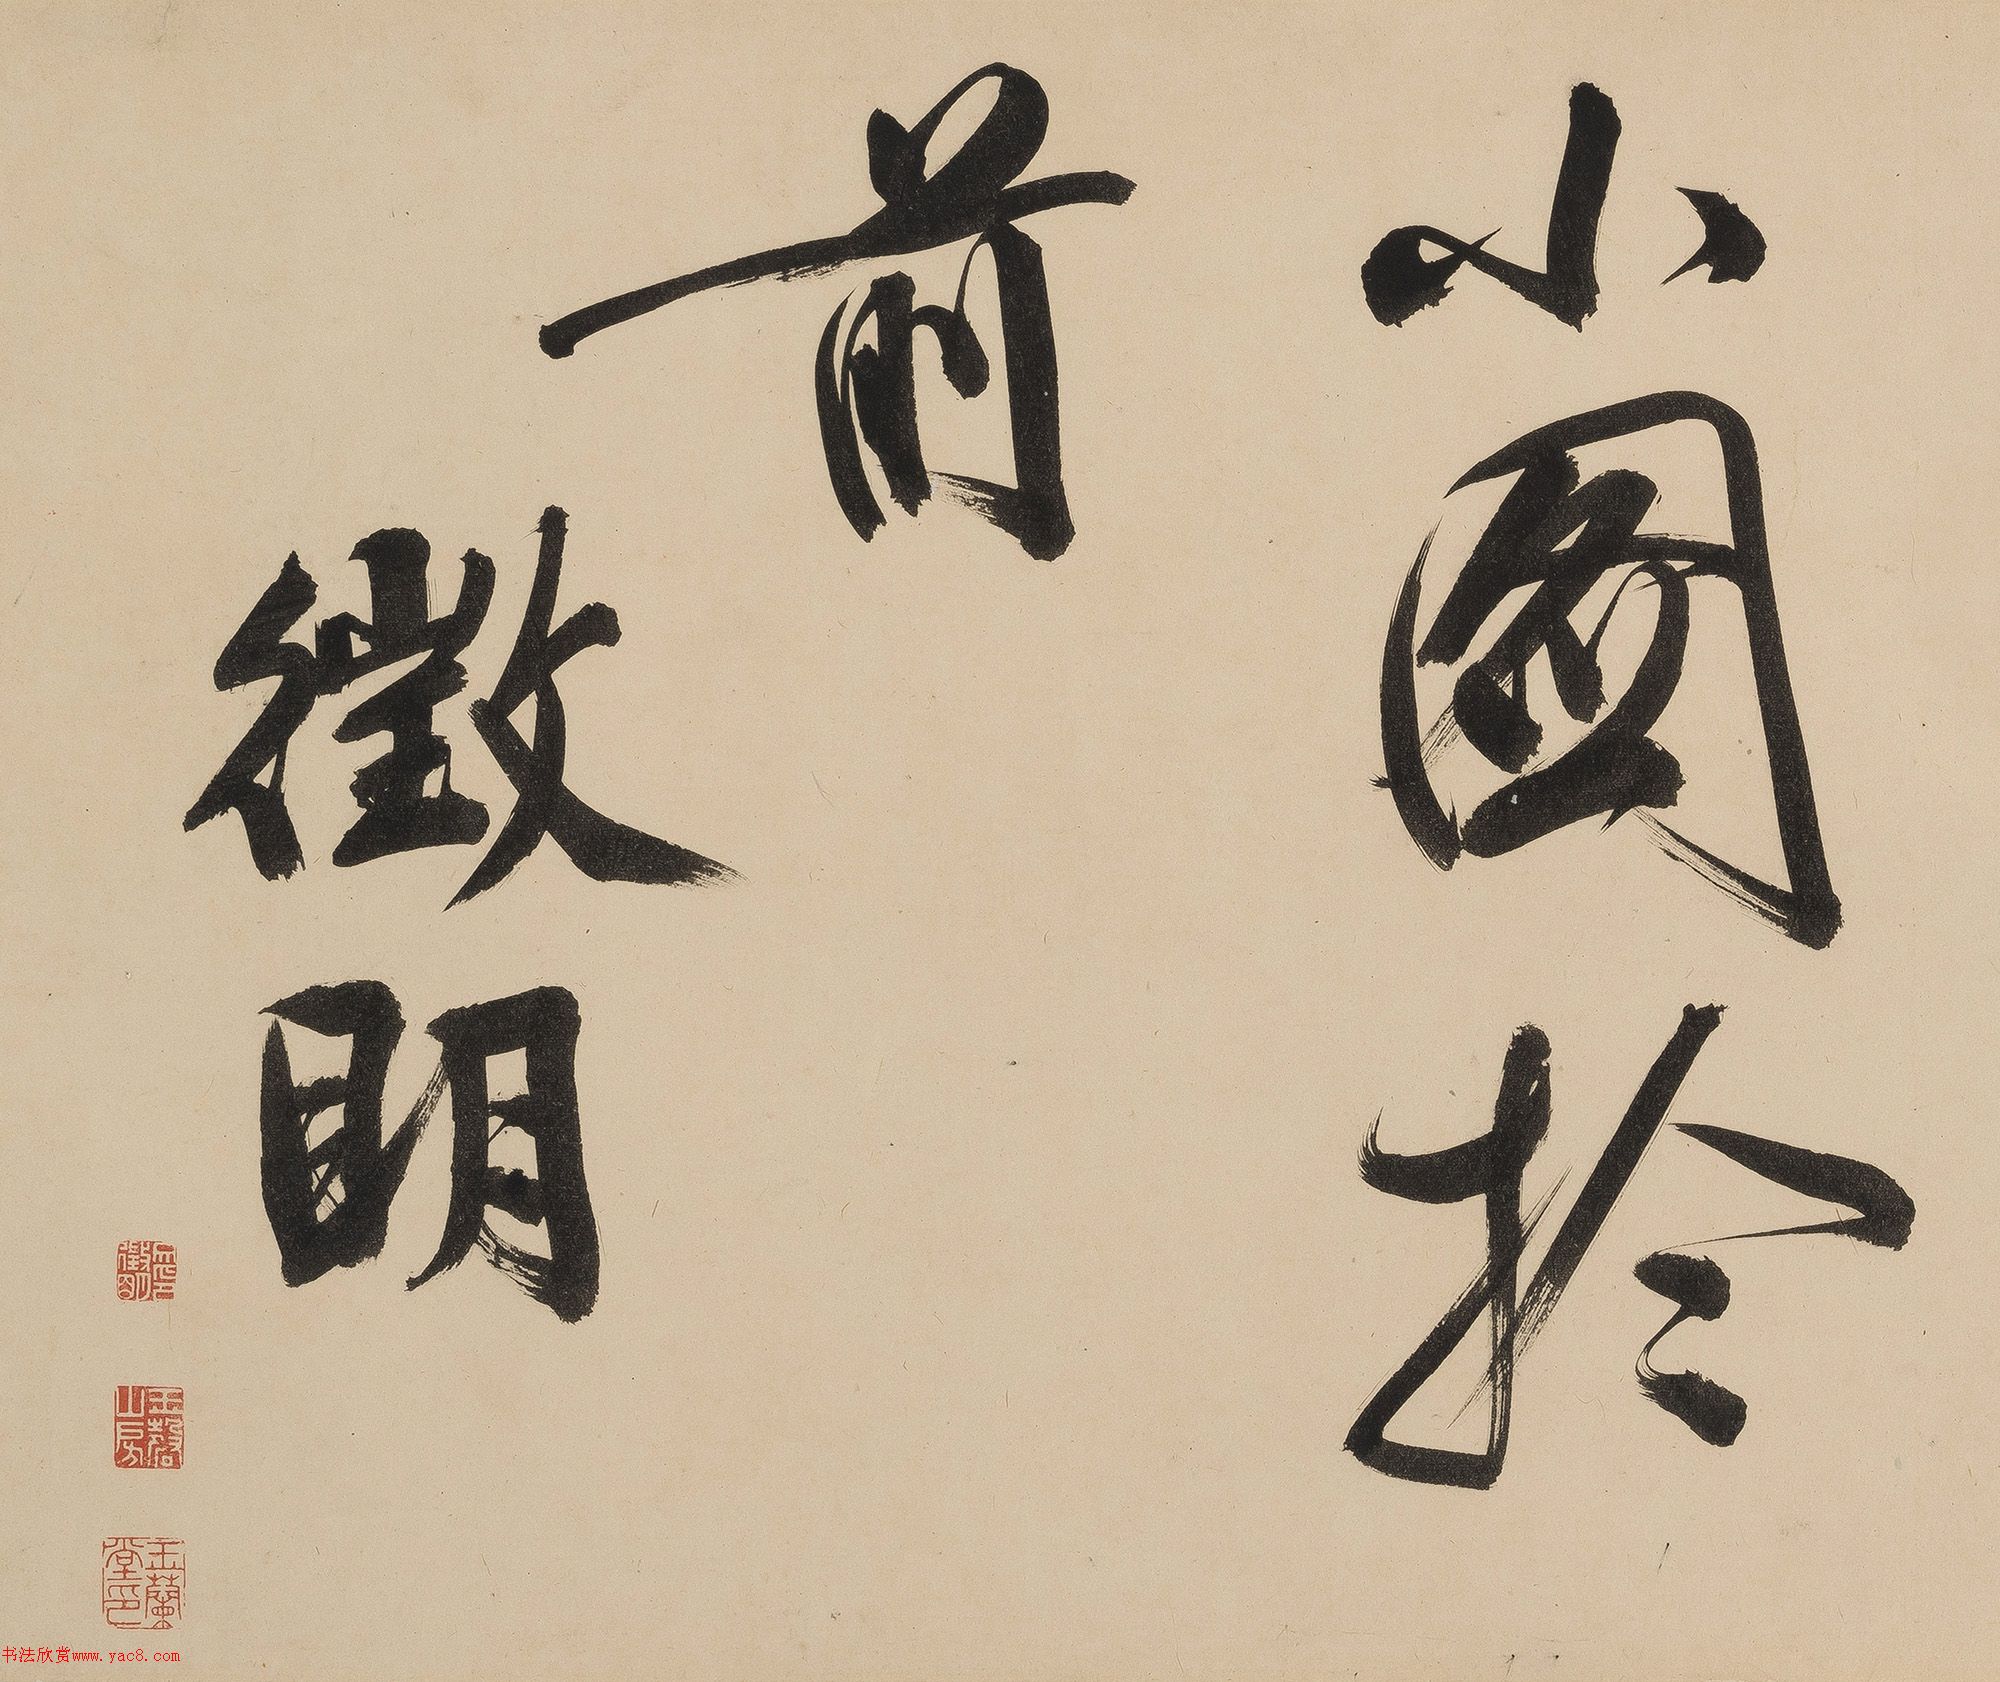 小圖於
前
徵明
玉磬山房
玉蘭堂印
书法欣赏www.yac8.com